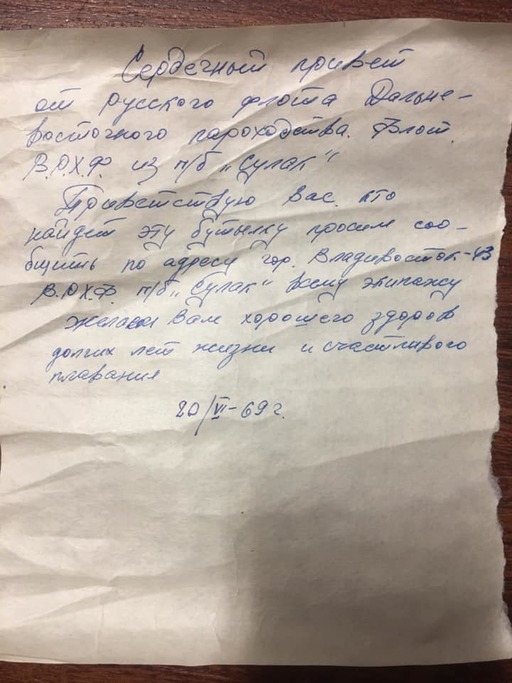 Сердечный привет
от русского флота Дальне-
восточного пароходства. Флот.
В.О.Х.Ф. из п/б "Сулак"
Приветствую Вас. кто
найдет эту бутылку просим соо-
бщить по адресу гор. Владивосток-43
В.О.Х.Ф. п/б "Сулак" всему экипажу
Желаем Вам хорошего здоров
долгих лет жизни и счастливого
плавания
20/VI-69г.